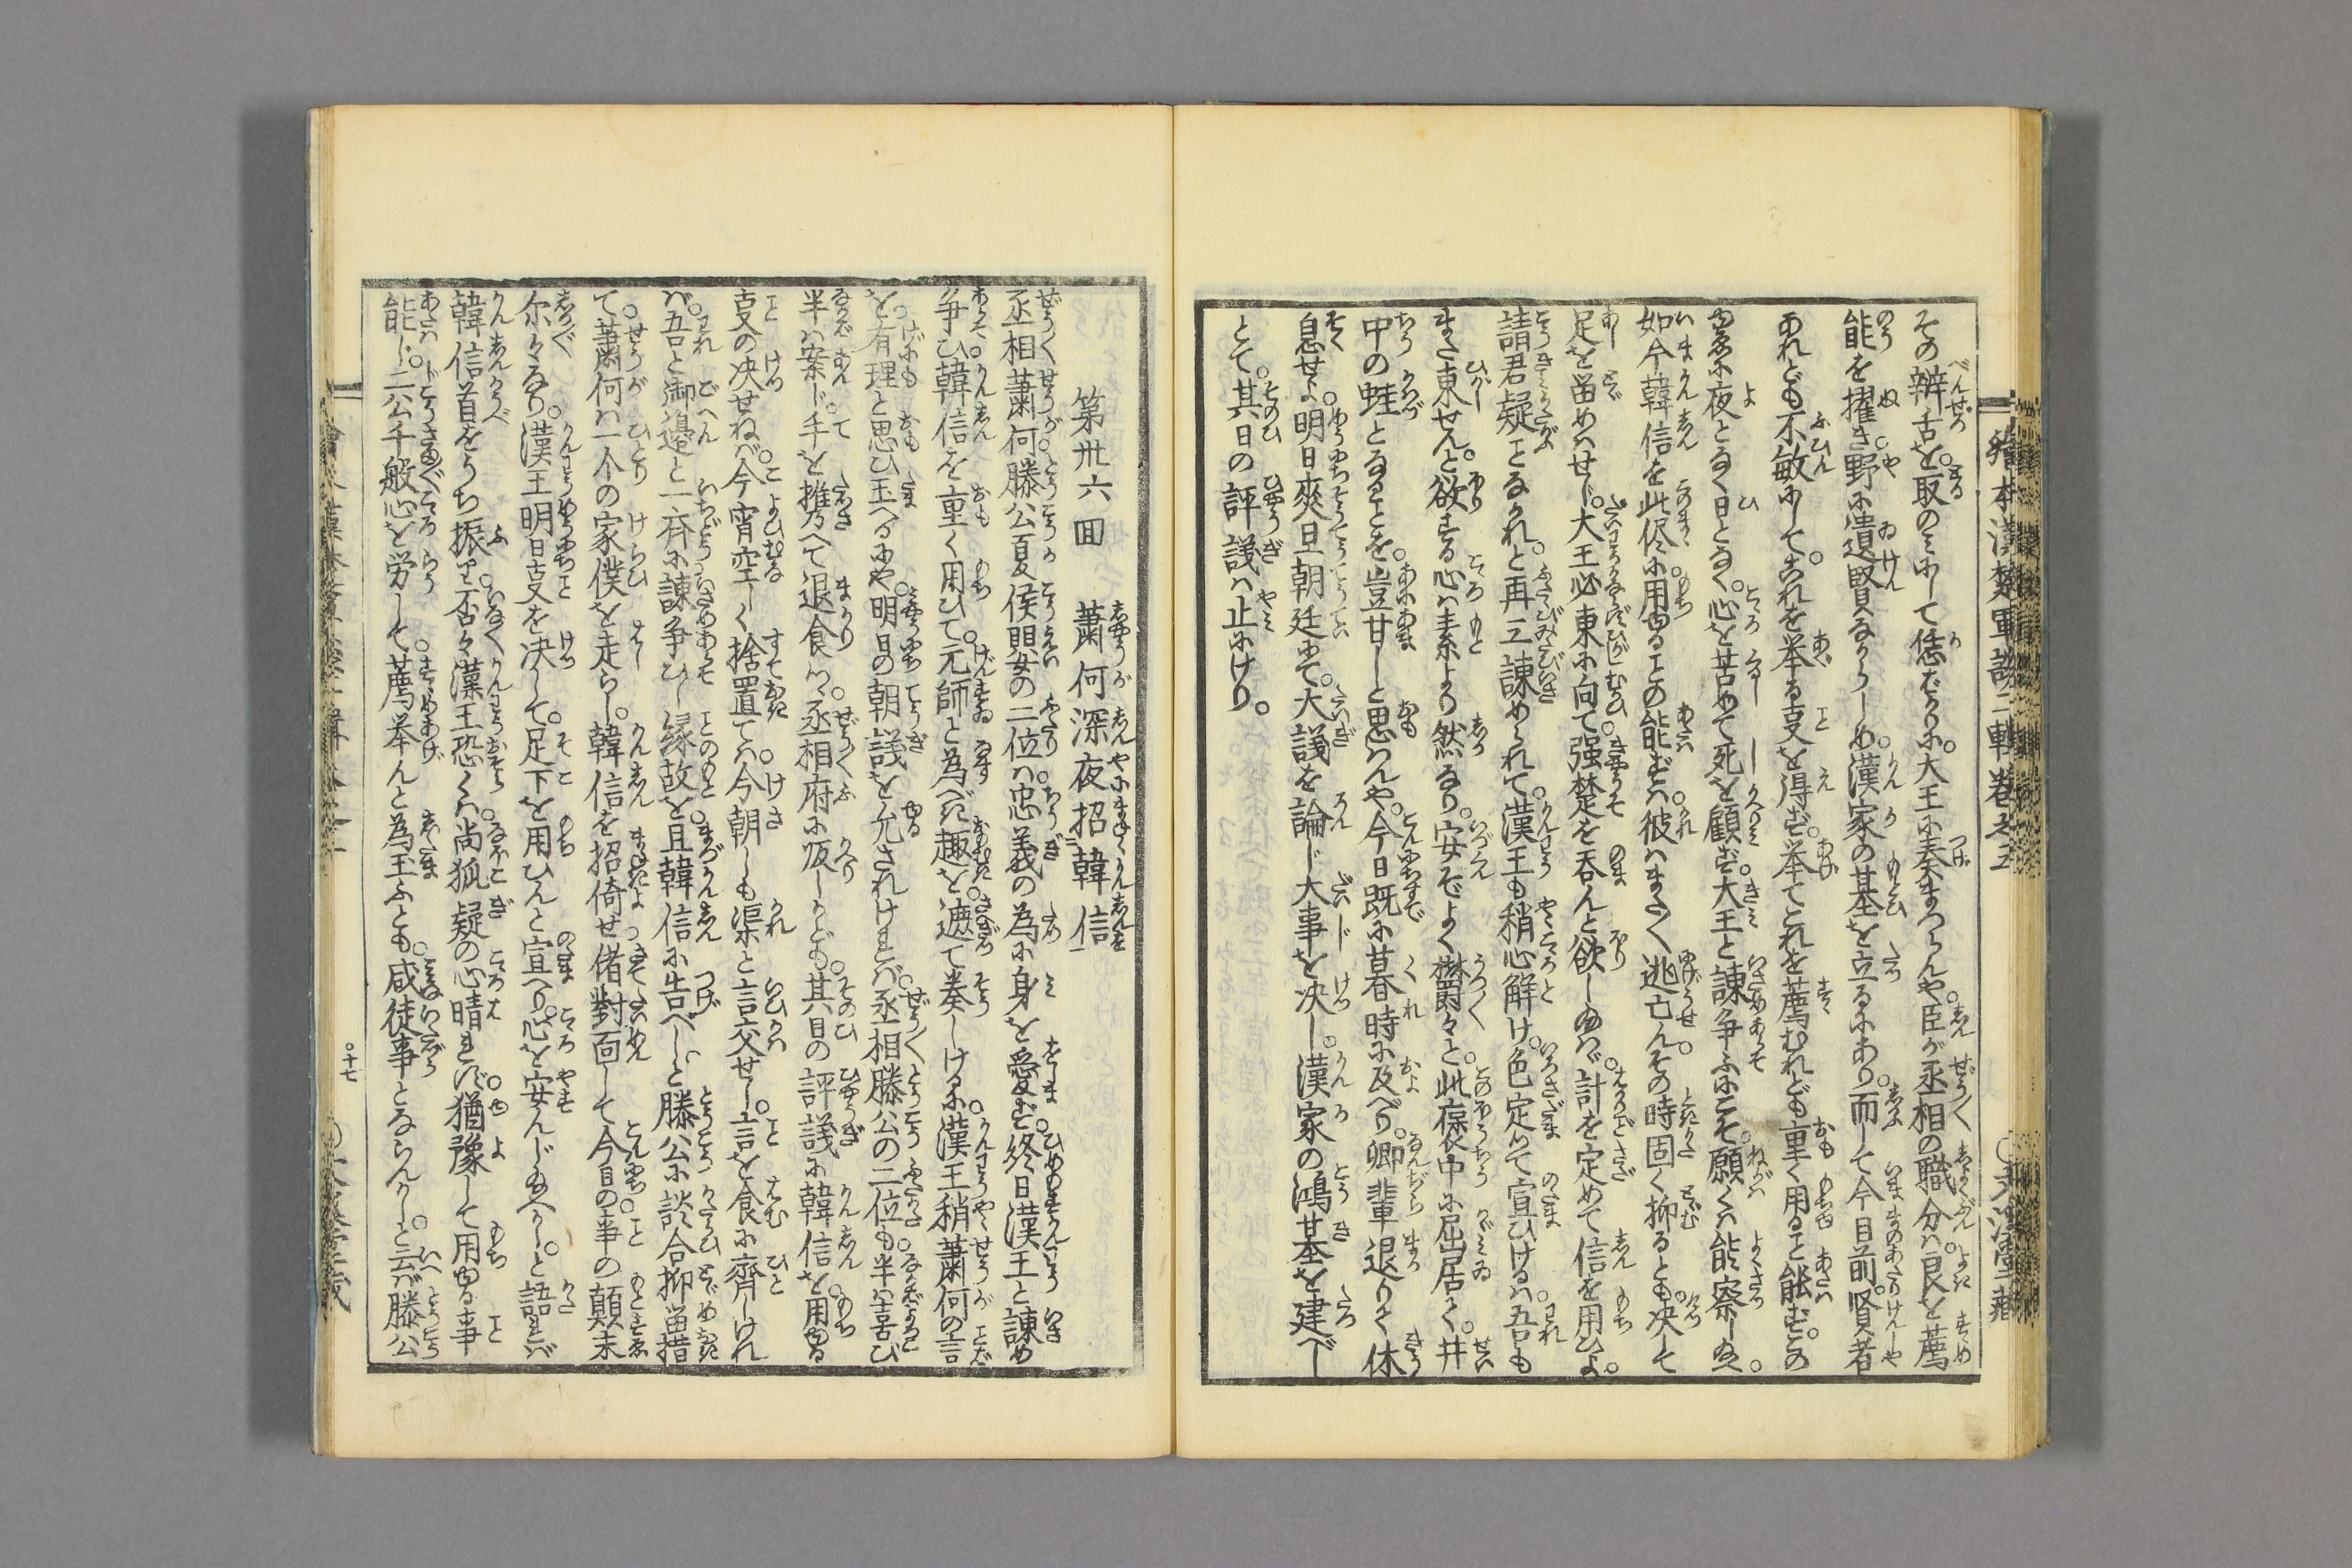 その辯舌を取のミにして恁ばかりに大王に奏まつらんや臣が丞相の職分ハ良を薦
能を擢き野に遺賢なからしめ漢家の基を立るにあり而して今目前賢者
あれども不敏にしてこれを挙る叓を得ず挙てこれを薦むれども重く用ると能ずこの
如今韓信を此侭に用ゆるとの能ずハ彼ハまさく逃亡んその時固く抑るとも决して
足を留めハせじ大王必東に向て强楚を呑んと欲し給ハゞ計を定めて信を用ひよ
請君疑とるなかれと再三諌められて漢王も稍心觧け色定りて宣ひけるハ吾も
また東せんと欲する心ハ素より然なり安ぞよく欝々と此褒中に屈居く井
中の蛙となることを豈甘しと思ハんや今日既に暮時に及べり卿輩退りく休
息せよ明日爽旦朝廷にて大議を論じ大事を决し漢家の鴻基を建べし
とて其日の評議ハ止にけり
繪本漢楚軍談二輯卷之五
第卅六囬　蕭何深夜招韓信
丞相蕭何滕公夏侯嬰の二位ハ忠義の為に身を愛ず終日漢王と諌め
争ひ韓信を重く用ひて元師と為べき趣を遮て奏しけるに漢王稍蕭何の言
を有理と思ひ玉へるにや明日の朝議を允されけれバ丞相滕公の二位も半ハ喜び
半ハ案じ手を携へて退食りつゝ丞相府に皈しかども其日の評議に韓信を用ゆる
叓の决せねバ今宵空しく捨置てハ今朝しも渠と言交せし言を食に齊しけれ
バ吾と御邉と一齊に諌争ひし縁故を且韓信に告べしと滕公に談合抑留措
て蕭何ハ一个の家僕を走らし韓信を招倚せ偖對面して今日の事の顛末
尓々なり漢王明日叓を决して足下を用ひんと宣へり心を安んじ給へかしと語れバ
韓信首をうち振り否々漢王恐くハ尚狐疑の心晴れず猶豫して用ゆる事
能じ二公千般心を労して薦挙んと為玉ふとも咸徒事とならんかしと云バ滕公
十七